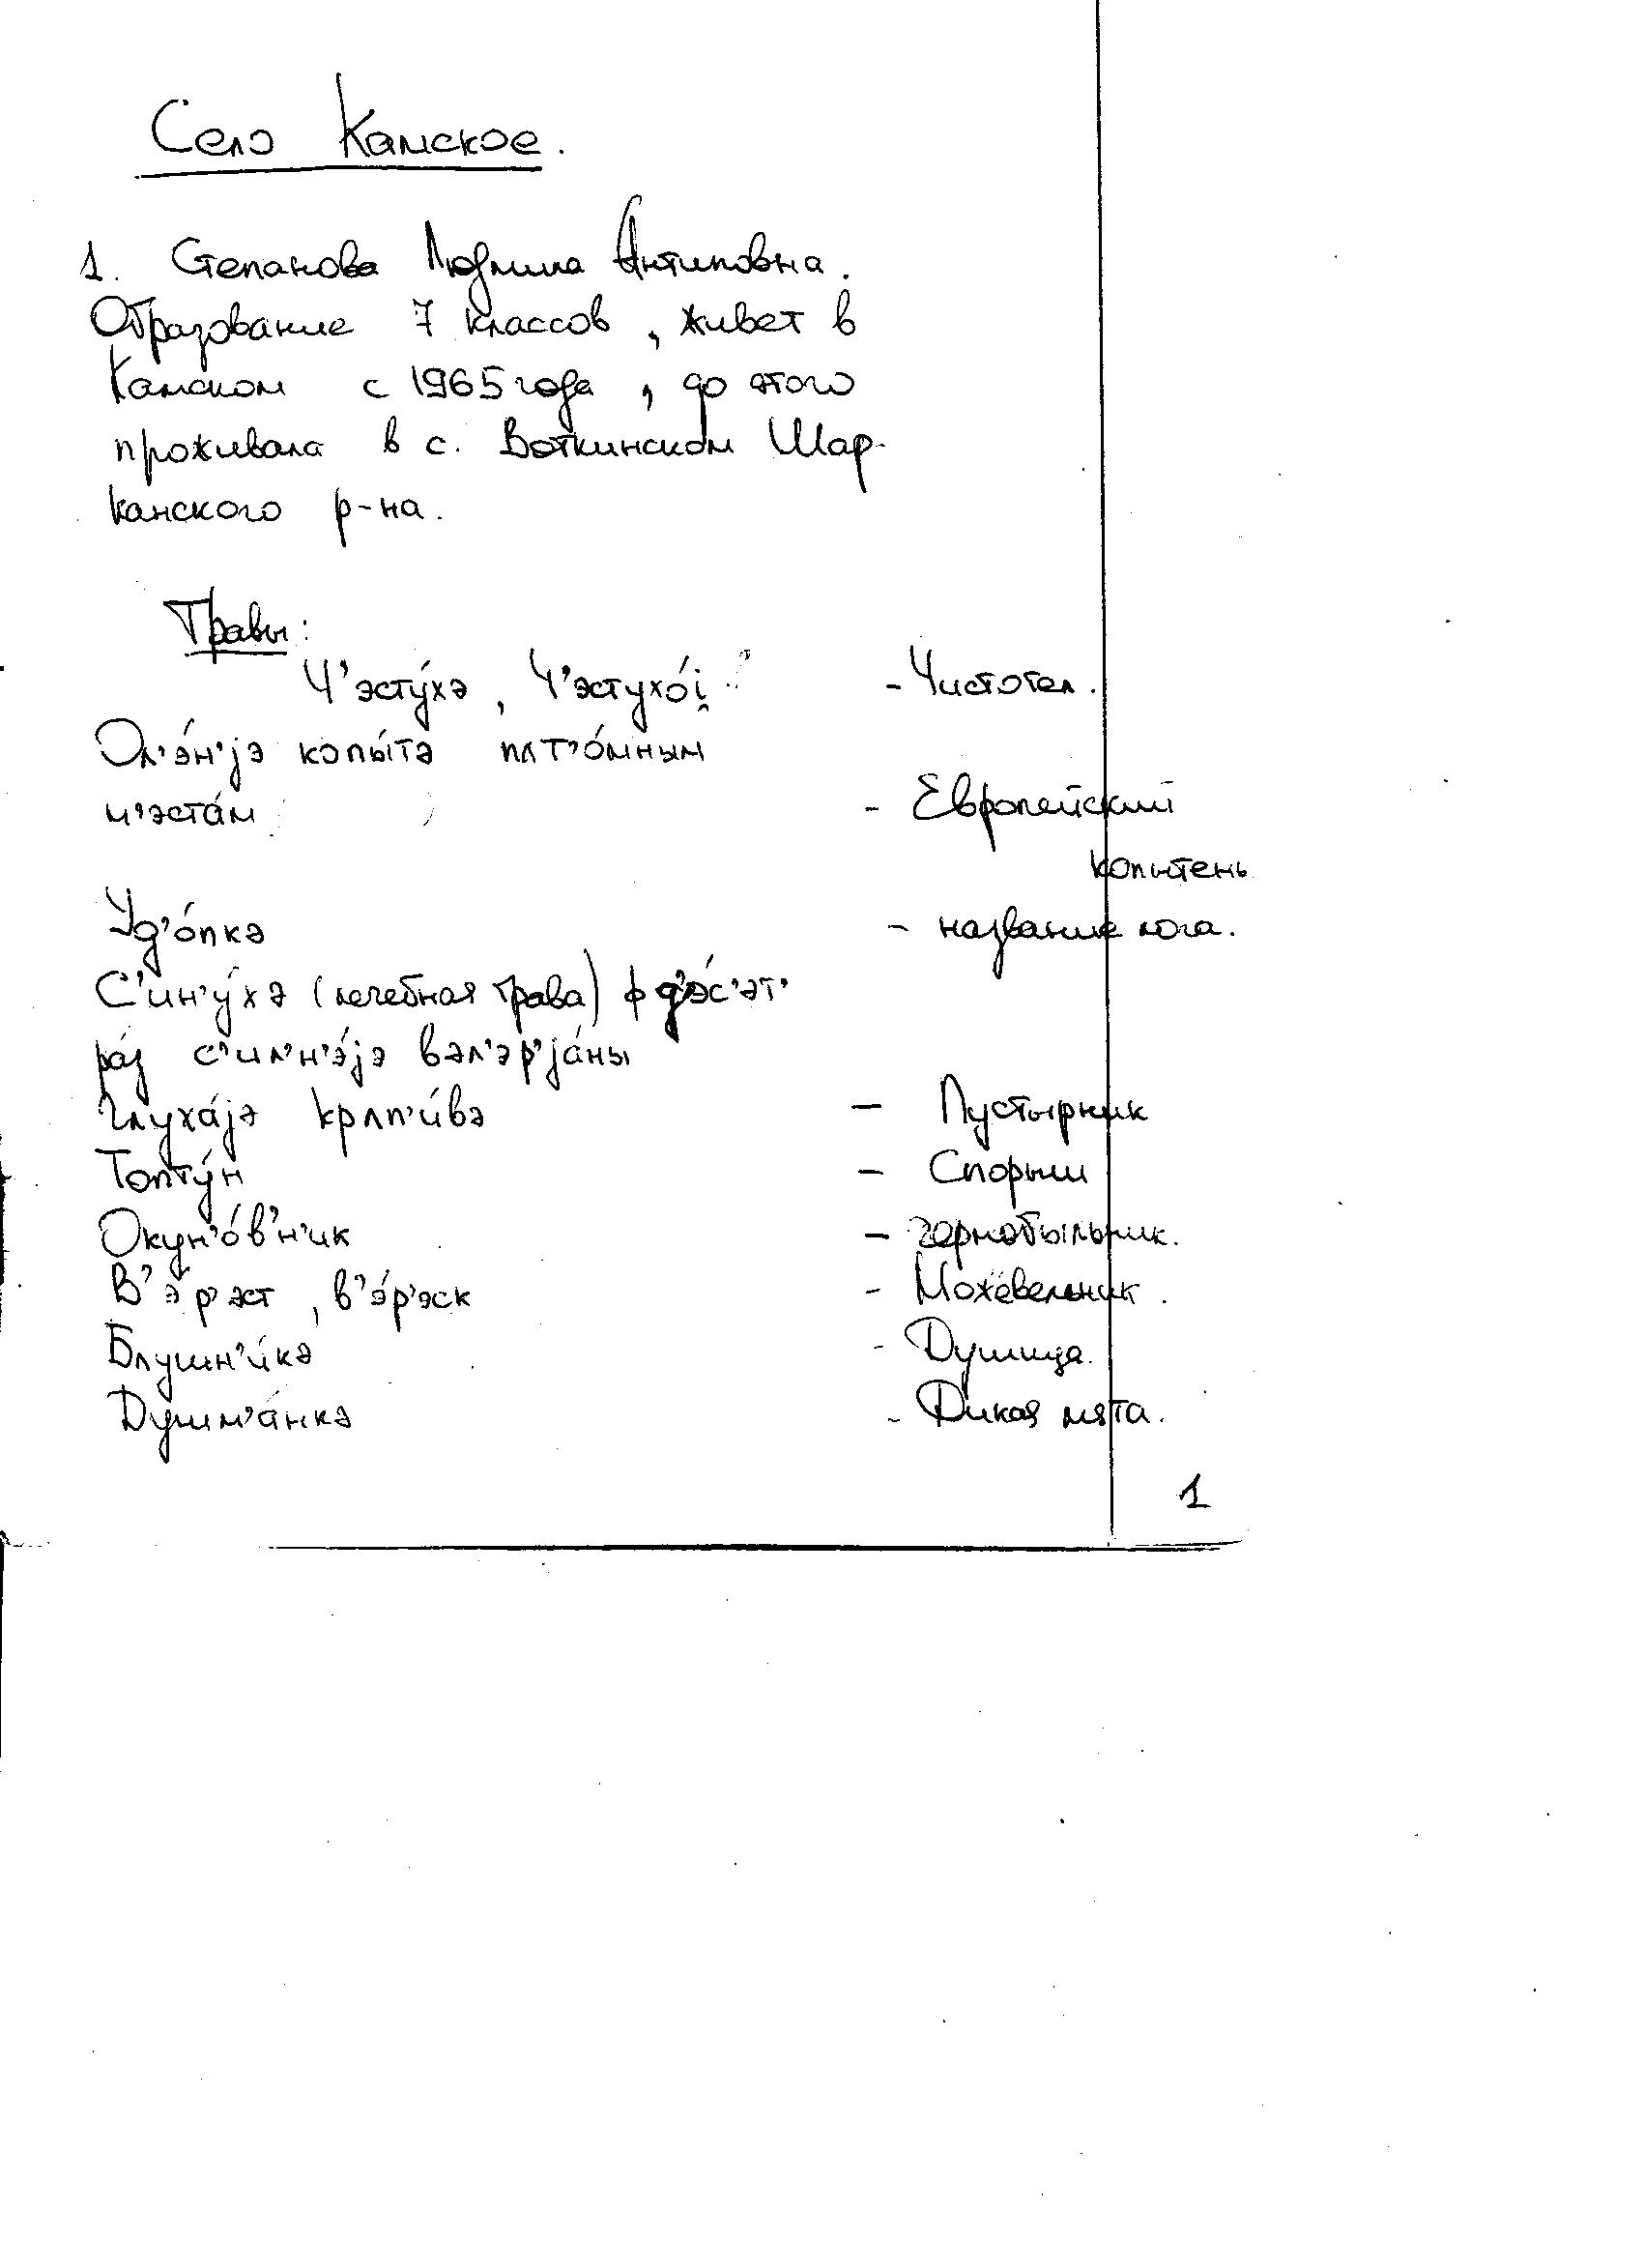 Село Камское.
1. Степанова Людмила Антиповна.
Образование 7 классов, живет в
Камском с 1965 года, до этого
проживала в с. Воткинском Шар-
канского р-на.
Травы:
Ч'эсту́хə, Ч'эстухо́i̯ - Чистотел.
Ол'э́н'jə копы́тə плт'о́мным
м'эста́м - Европейский
копытень
Уд'о́пкə - название лога.
С'ин'у́хə (лечебная трава) ф д'э́с'əт'
ра́з с'ил'н'э́jə вəл'əр'jа́ны
Глуха́jə крлп'и́вə - Пустырник
Топту́н - Спорыш
Окун'о́в'н'ик - Чернобыльник.
В'э́р'эст, в'э́р'эск - Можевельник.
Блушн'и́кə - Душица.
Душм'а́нкə - Дикая мята.
1